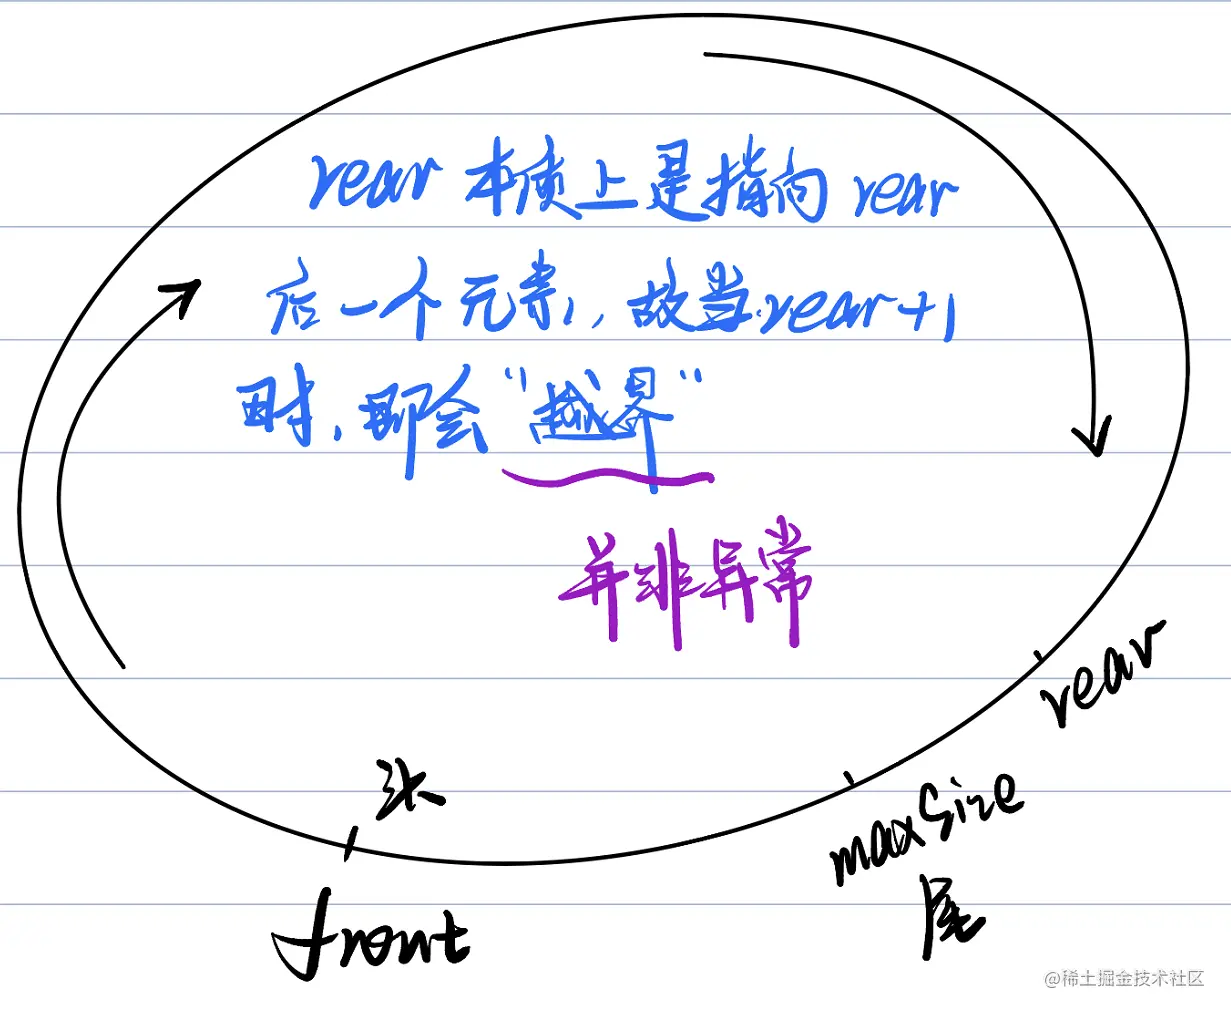 rear 本质上是指向 rear
后一个元素,故当rear+1
时,即会“越界”
并非异常
rear
头
maxSize
尾
front
@稀土掘金技术社区